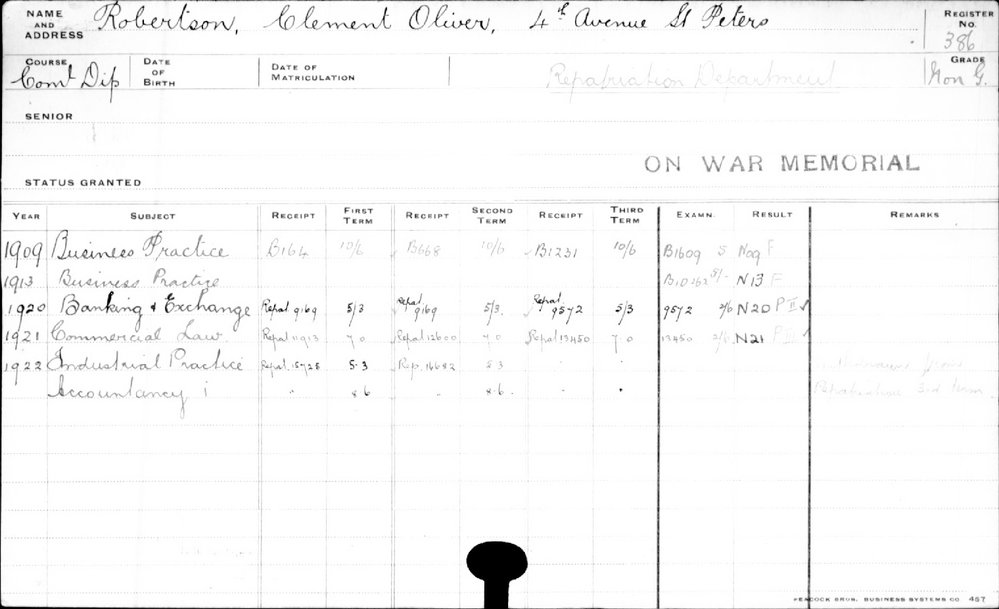 NAME AND ADDRESS Robertson, Clement Oliver, 4th Avenue St Peters REGISTER No. 386
COURSE Coml Dip DATE OF BIRTH DATE OF MATRICULATION Repatriation Department GRADE Non G.
SENIOR
ON WAR MEMORIAL
STATUS GRANTED
YEAR SUBJECT RECEIPT FIRST TERM RECEIPT SECOND TERM RECEIPT THIRD TERM EXAMN. RESULT REMARKS
1909 Business Practice B164 10/6 B668 10/6 B1231 10/6 B1609 5 No9 F
1913 Business Practice B10162 5/- N13 F
1920 Banking & Exchange Repat 9169 5/3 Repat 9169 5/3. Repat 9572 5/3 9572 2/6 N20 P II ✓
1921 Commercial Law Repat 11913 7 0 Repat 12600 7 0 Repat 13450 7 0 13450 2/6 N21 P III ✓
1922 Industrial Practice Repat. 15725 5.3 Rep. 16682 5.3 Withdrawn from
Accountancy i " 8 6 " 8 6. Repatriation 3rd term
PEACOCK BROS. BUSINESS SYSTEMS CO. 457